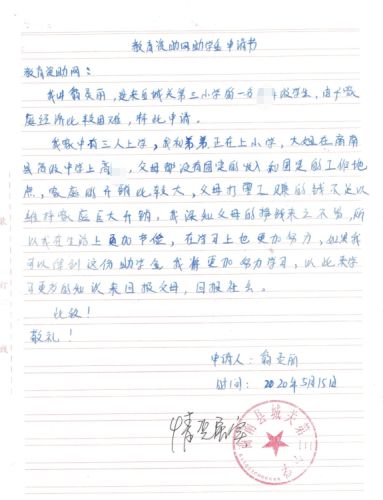 教育资助网助学金申请书
教育资助网：
我叫翁灵丽，是来自城关第三小学的一名 级学生，由于家
庭经济比较困难，特此申请。
我家中有三人上学，我和弟弟正在上小学，大姐在商南
县高级中学上高 ，父母都没有固定的收入和固定的工作地
点，家庭的开销比较大，父母打零工赚的钱不足以
维持家庭巨大开销，我深知父母的挣钱来之不易，所
以我在生活上更加节俭，在学习上也更加努力，如果我
可以得到这份助学金，我将更加努力学习，以此来学
习更多的知识来回报父母，回报社会。
此致！
敬礼！
申请人：翁灵丽
时间：2020年5月15日
情况属实
商南县城关第三小学